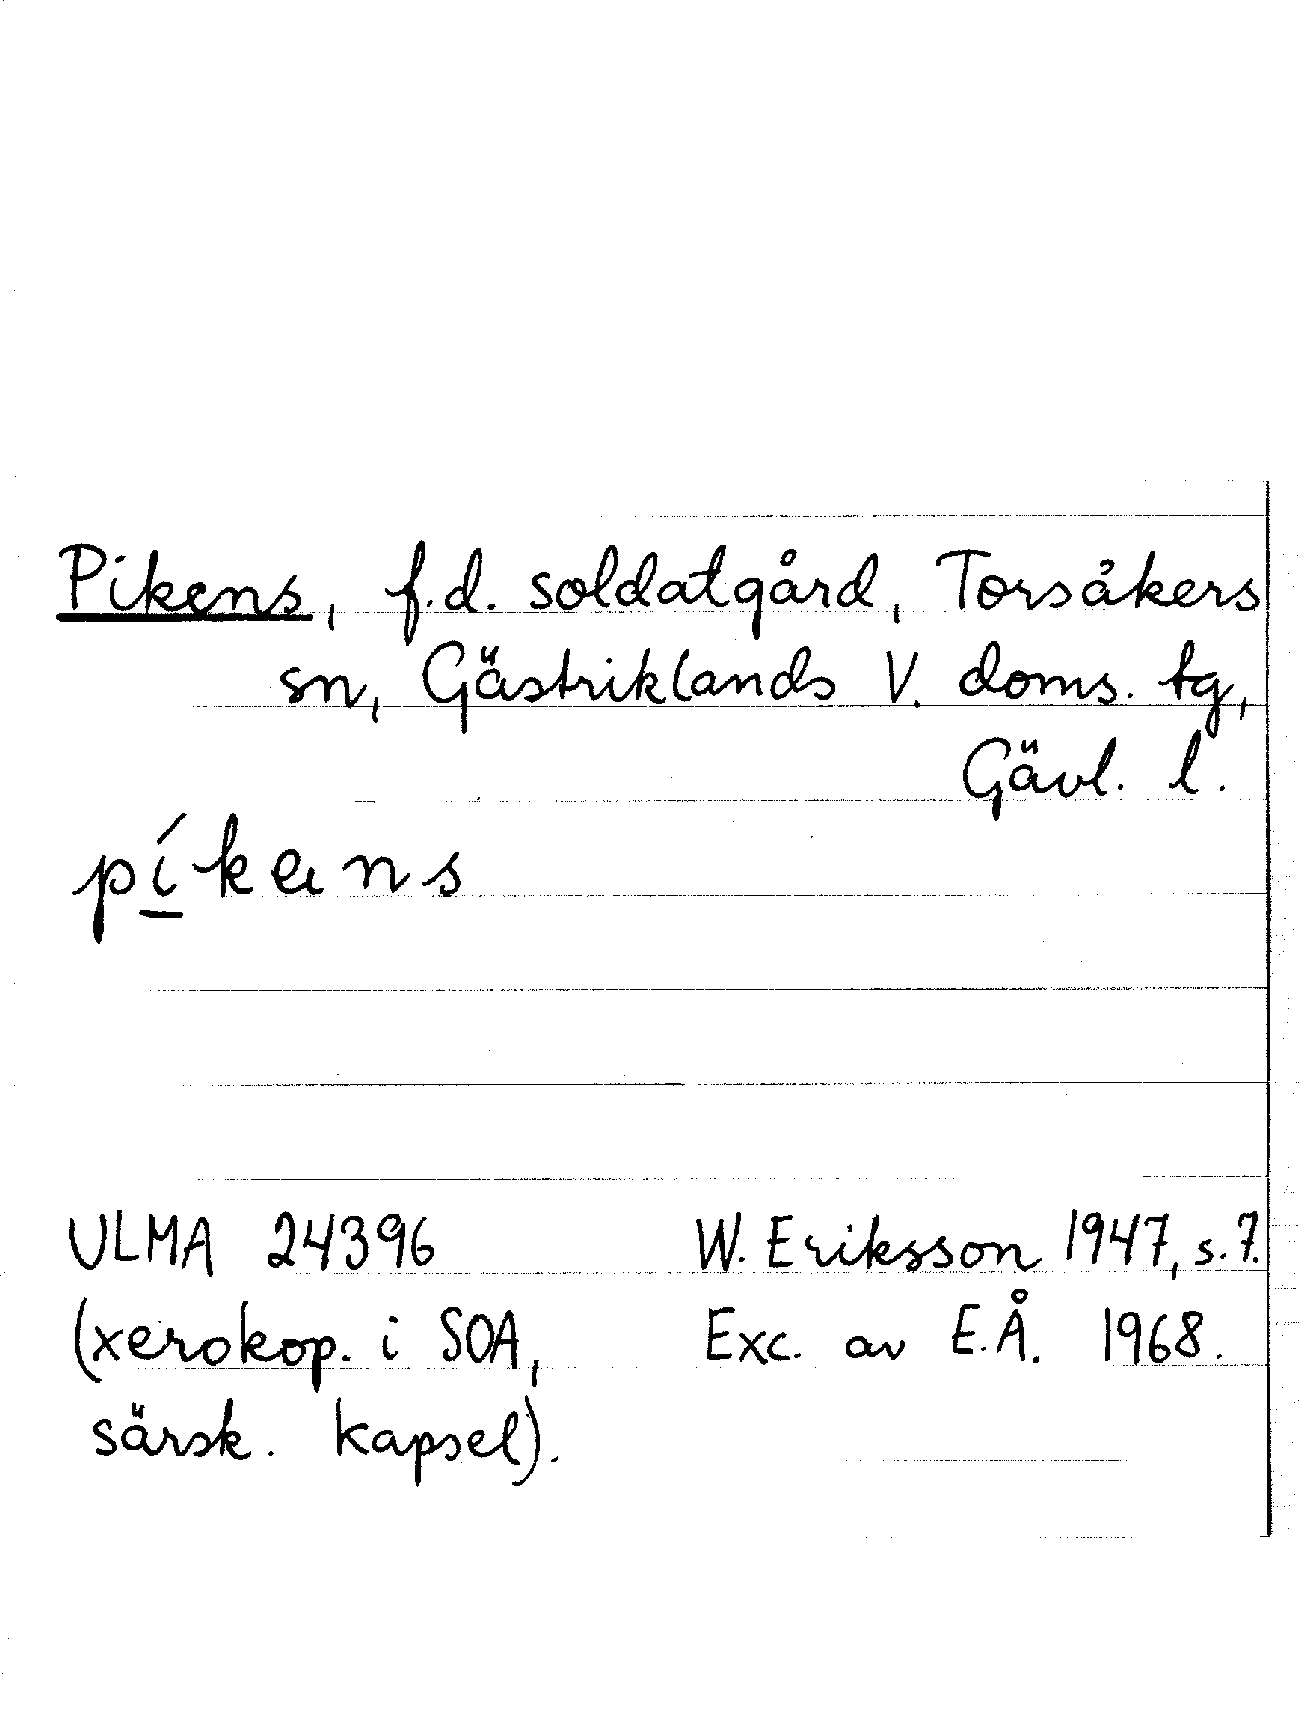 Pikens, f.d. soldatgård, Torsåkers
sn, Gästriklands V. doms. tg,
Gävl. l.
ULMA 24396 W. Eriksson 1947, s. 7.
(xerokop. i SOA, Exc. av E.Å. 1968.
särsk. kapsel).